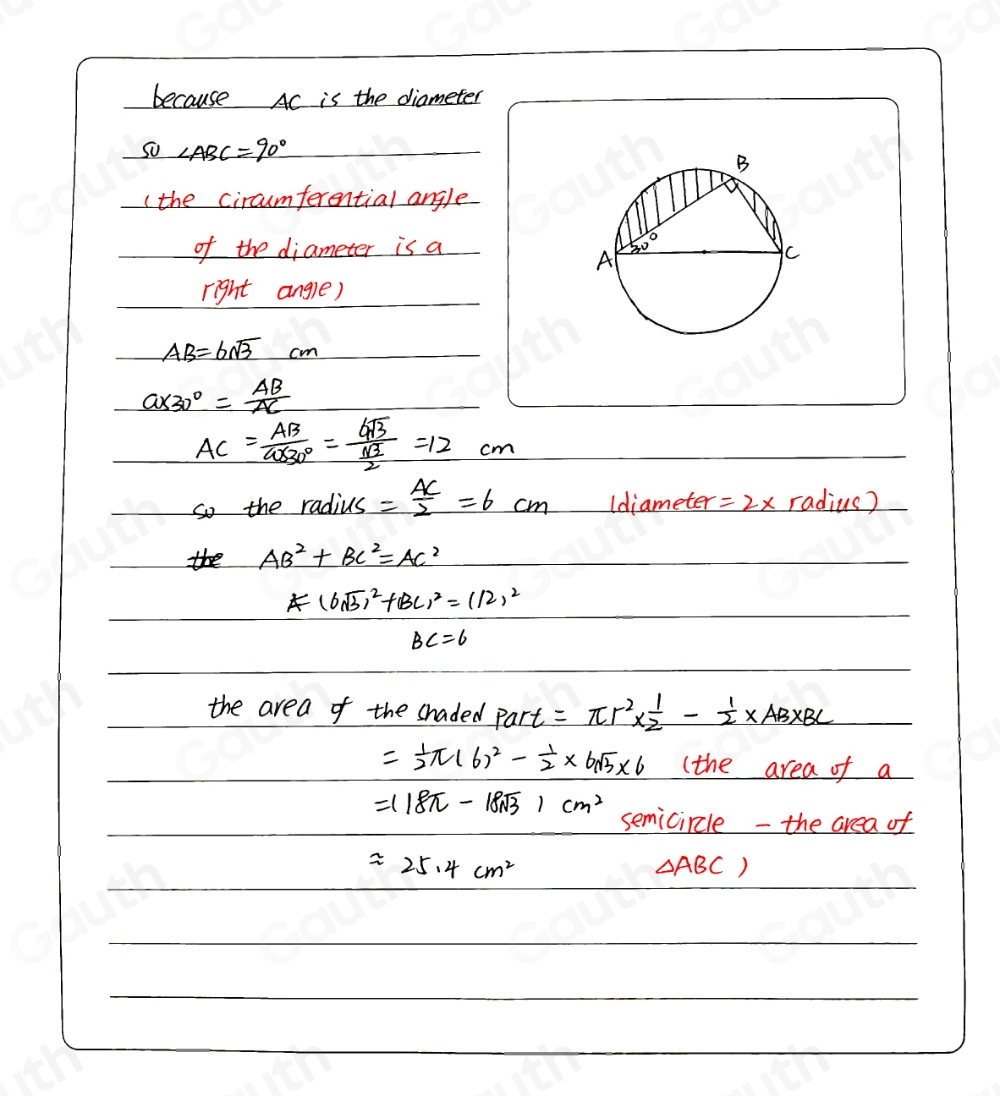 because AC is the diameter
so ∠ABC=90°
(the circumferential angle
of the diameter is a
right angle)
AB=6√3 cm
cos30° = AB/AC
AC = AB/cos30° = 6√3/(√3/2) = 12 cm
so the radius = AC/2 = 6 cm (diameter = 2 × radius)
the AB² + BC² = AC²
(6√3)² + (BC)² = (12)²
BC=6
the area of the shaded part = πr² × 1/2 - 1/2 × AB×BC
= 1/2π(6)² - 1/2 × 6√3 × 6 (the area of a
=(18π - 18√3) cm² semicircle - the area of
≈ 25.4 cm² △ABC)
B
30°
A
C
Gauth